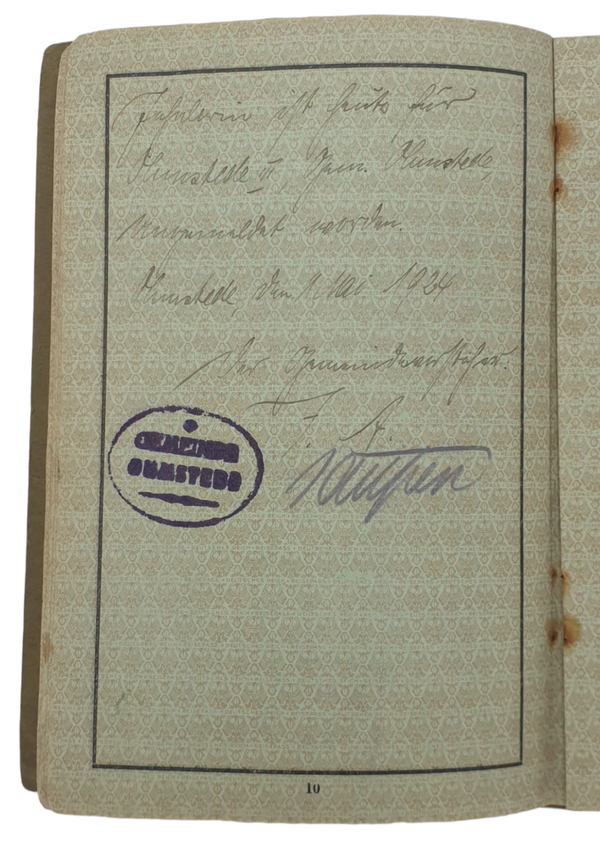 Inhaberin ist heute für
Ohmstede III Gem. Ohmstede,
angemeldet worden.
Ohmstede, den 1. Mai 1924
Der Gemeindevorsteher.
J. A.
GEMEINDE
OHMSTEDE
10